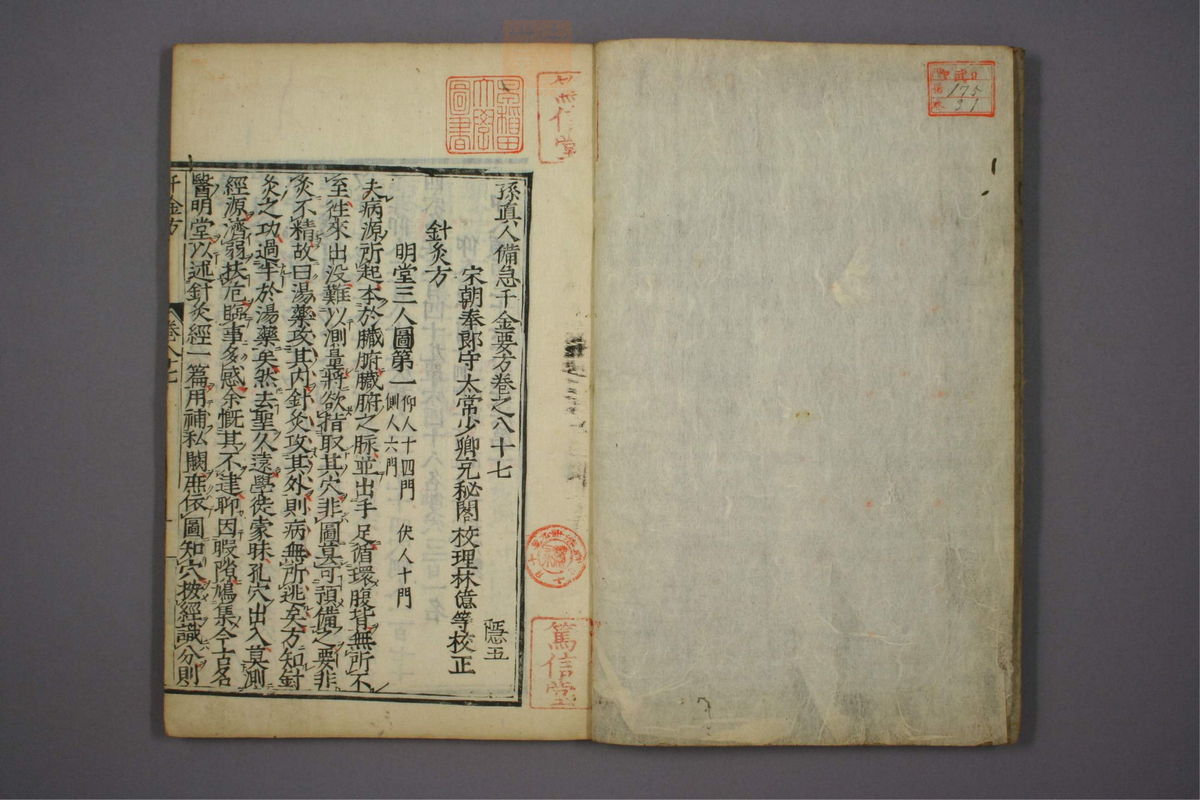 孫真人備急千金要方卷之八十七 隱五
宋朝奉郎守太常少卿充秘閣校理林億等校正
針灸方
明堂三人圖第一 仰人十四門 伏人十門
側人六門
夫病源所起本於臟腑臟腑之脉並出手足循環腹背無所不
至往來出没難以測量將欲指取其穴非圖莫可預備之要非
灸不精故曰湯藥攻其内針灸攻其外則病無所逃矣方知針
灸之功過半於湯藥矣然去聖久遠學徒蒙昧孔穴出入莫測
經源濟弱扶危臨事多感余慨其不逮聊因暇隙鳩集今古名
醫明堂以述針灸經一篇用補私闕庶依圖知穴按經識分則
千金方
卷八十七
早稲田
大學
圖書
篤信堂
篤信堂
175
31